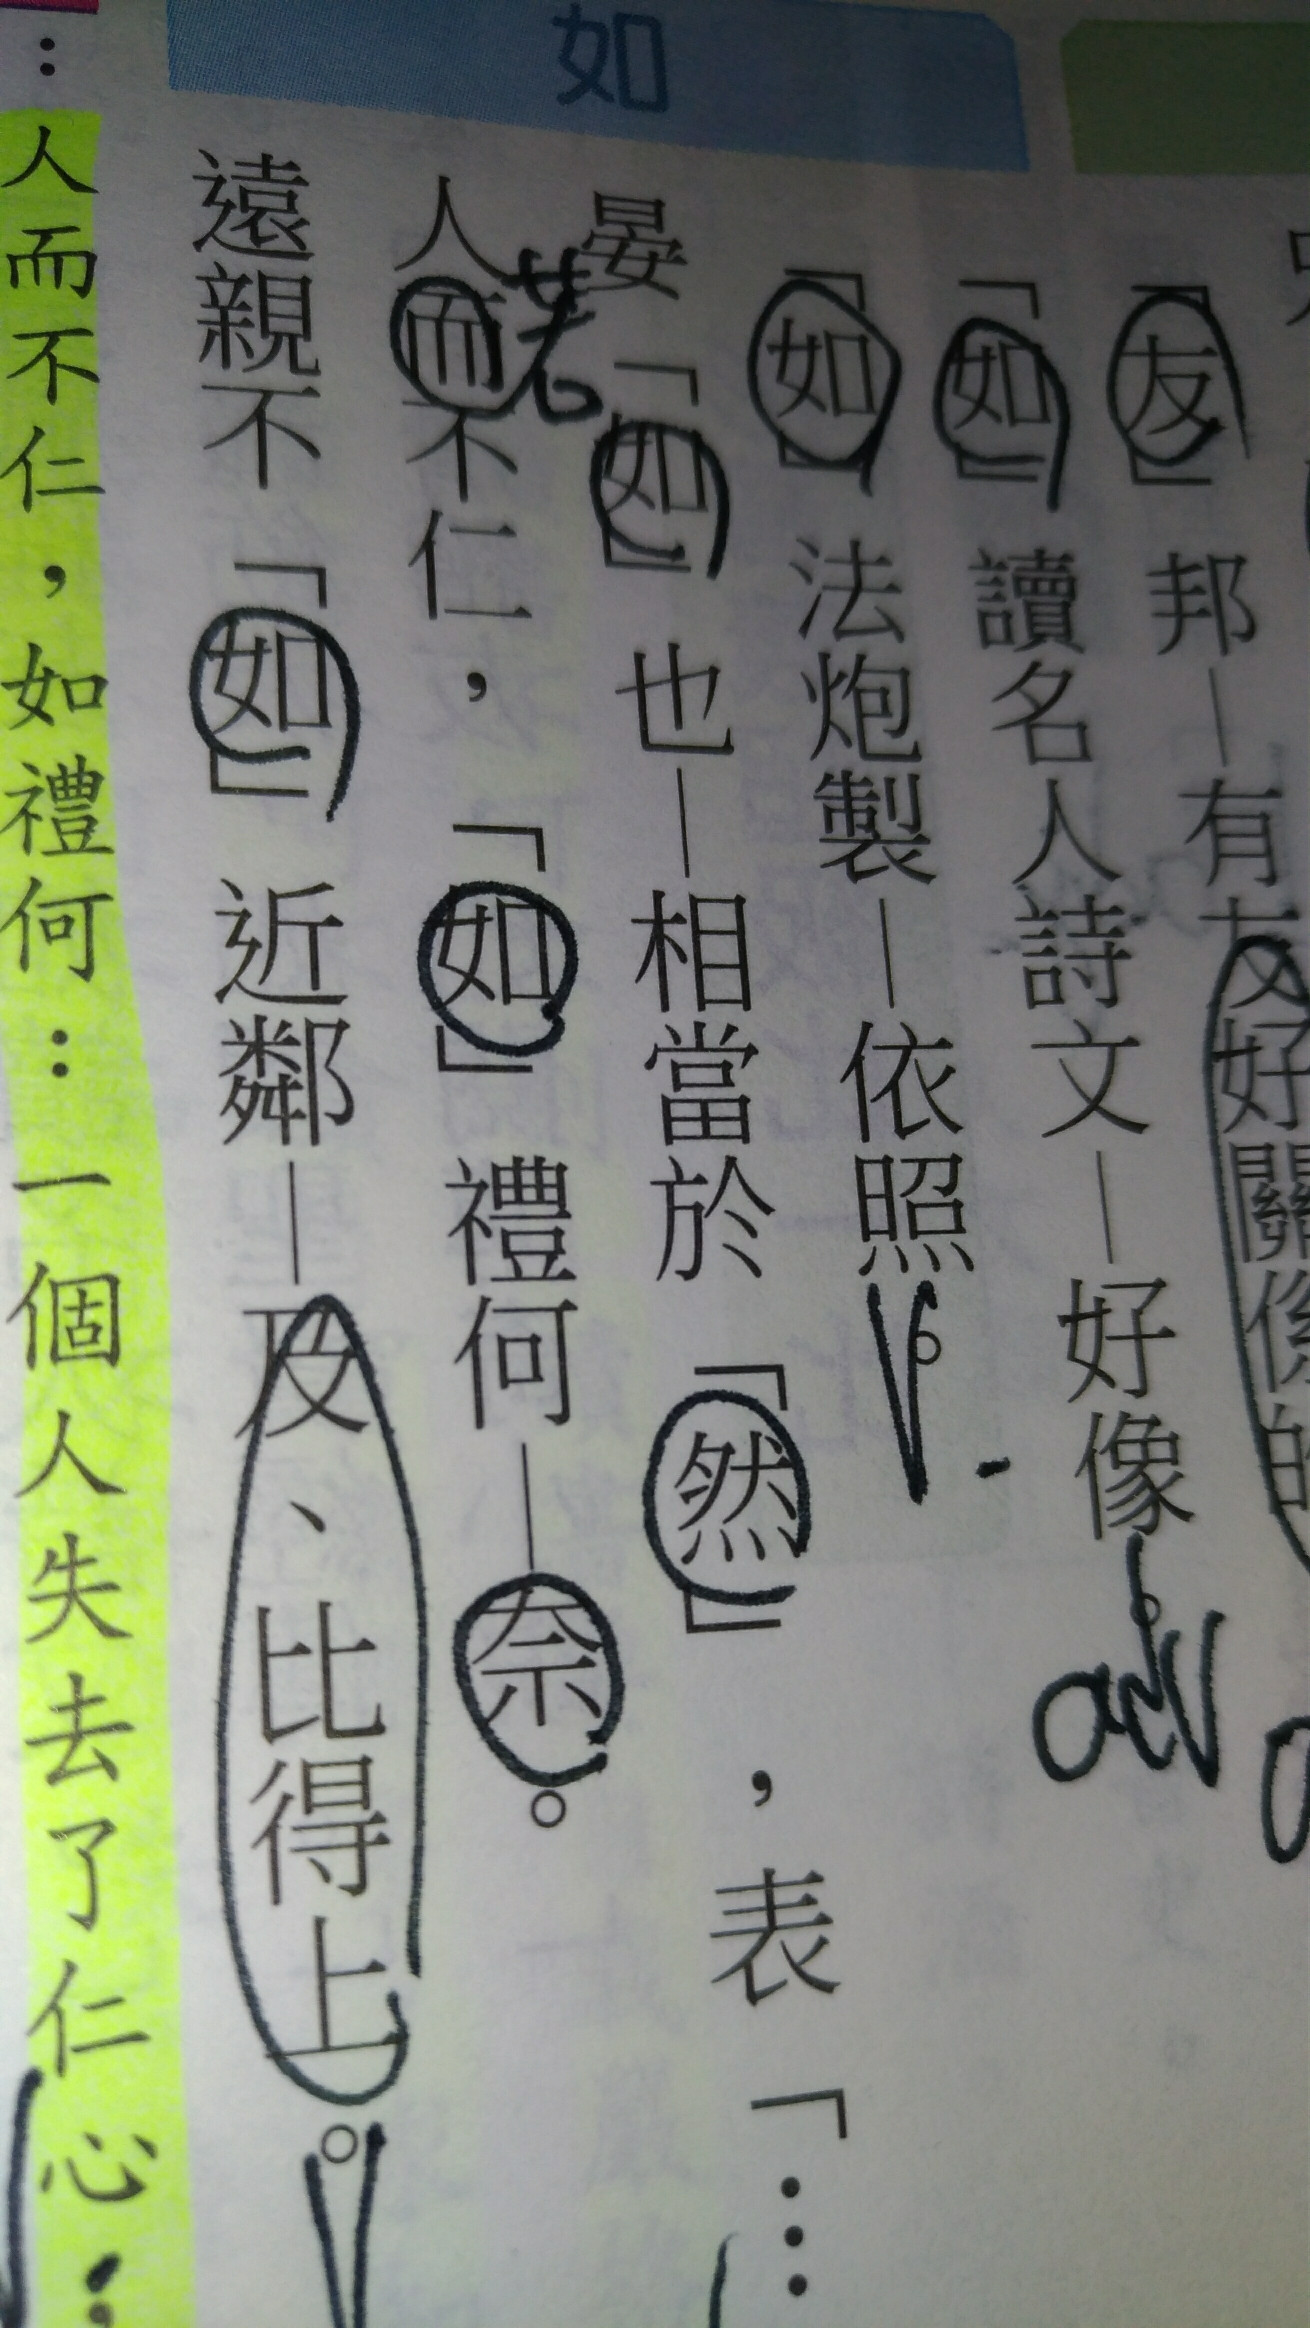 如
「友」邦—有友好關係的
「如」讀名人詩文—好像。
adv
「如」法炮製—依照。
V
晏「如」也—相當於「然」，表「…
人而不仁，「如」禮何—奈。
若
遠親不「如」近鄰—及、比得上。
V
：人而不仁，如禮何：一個人失去了仁心，